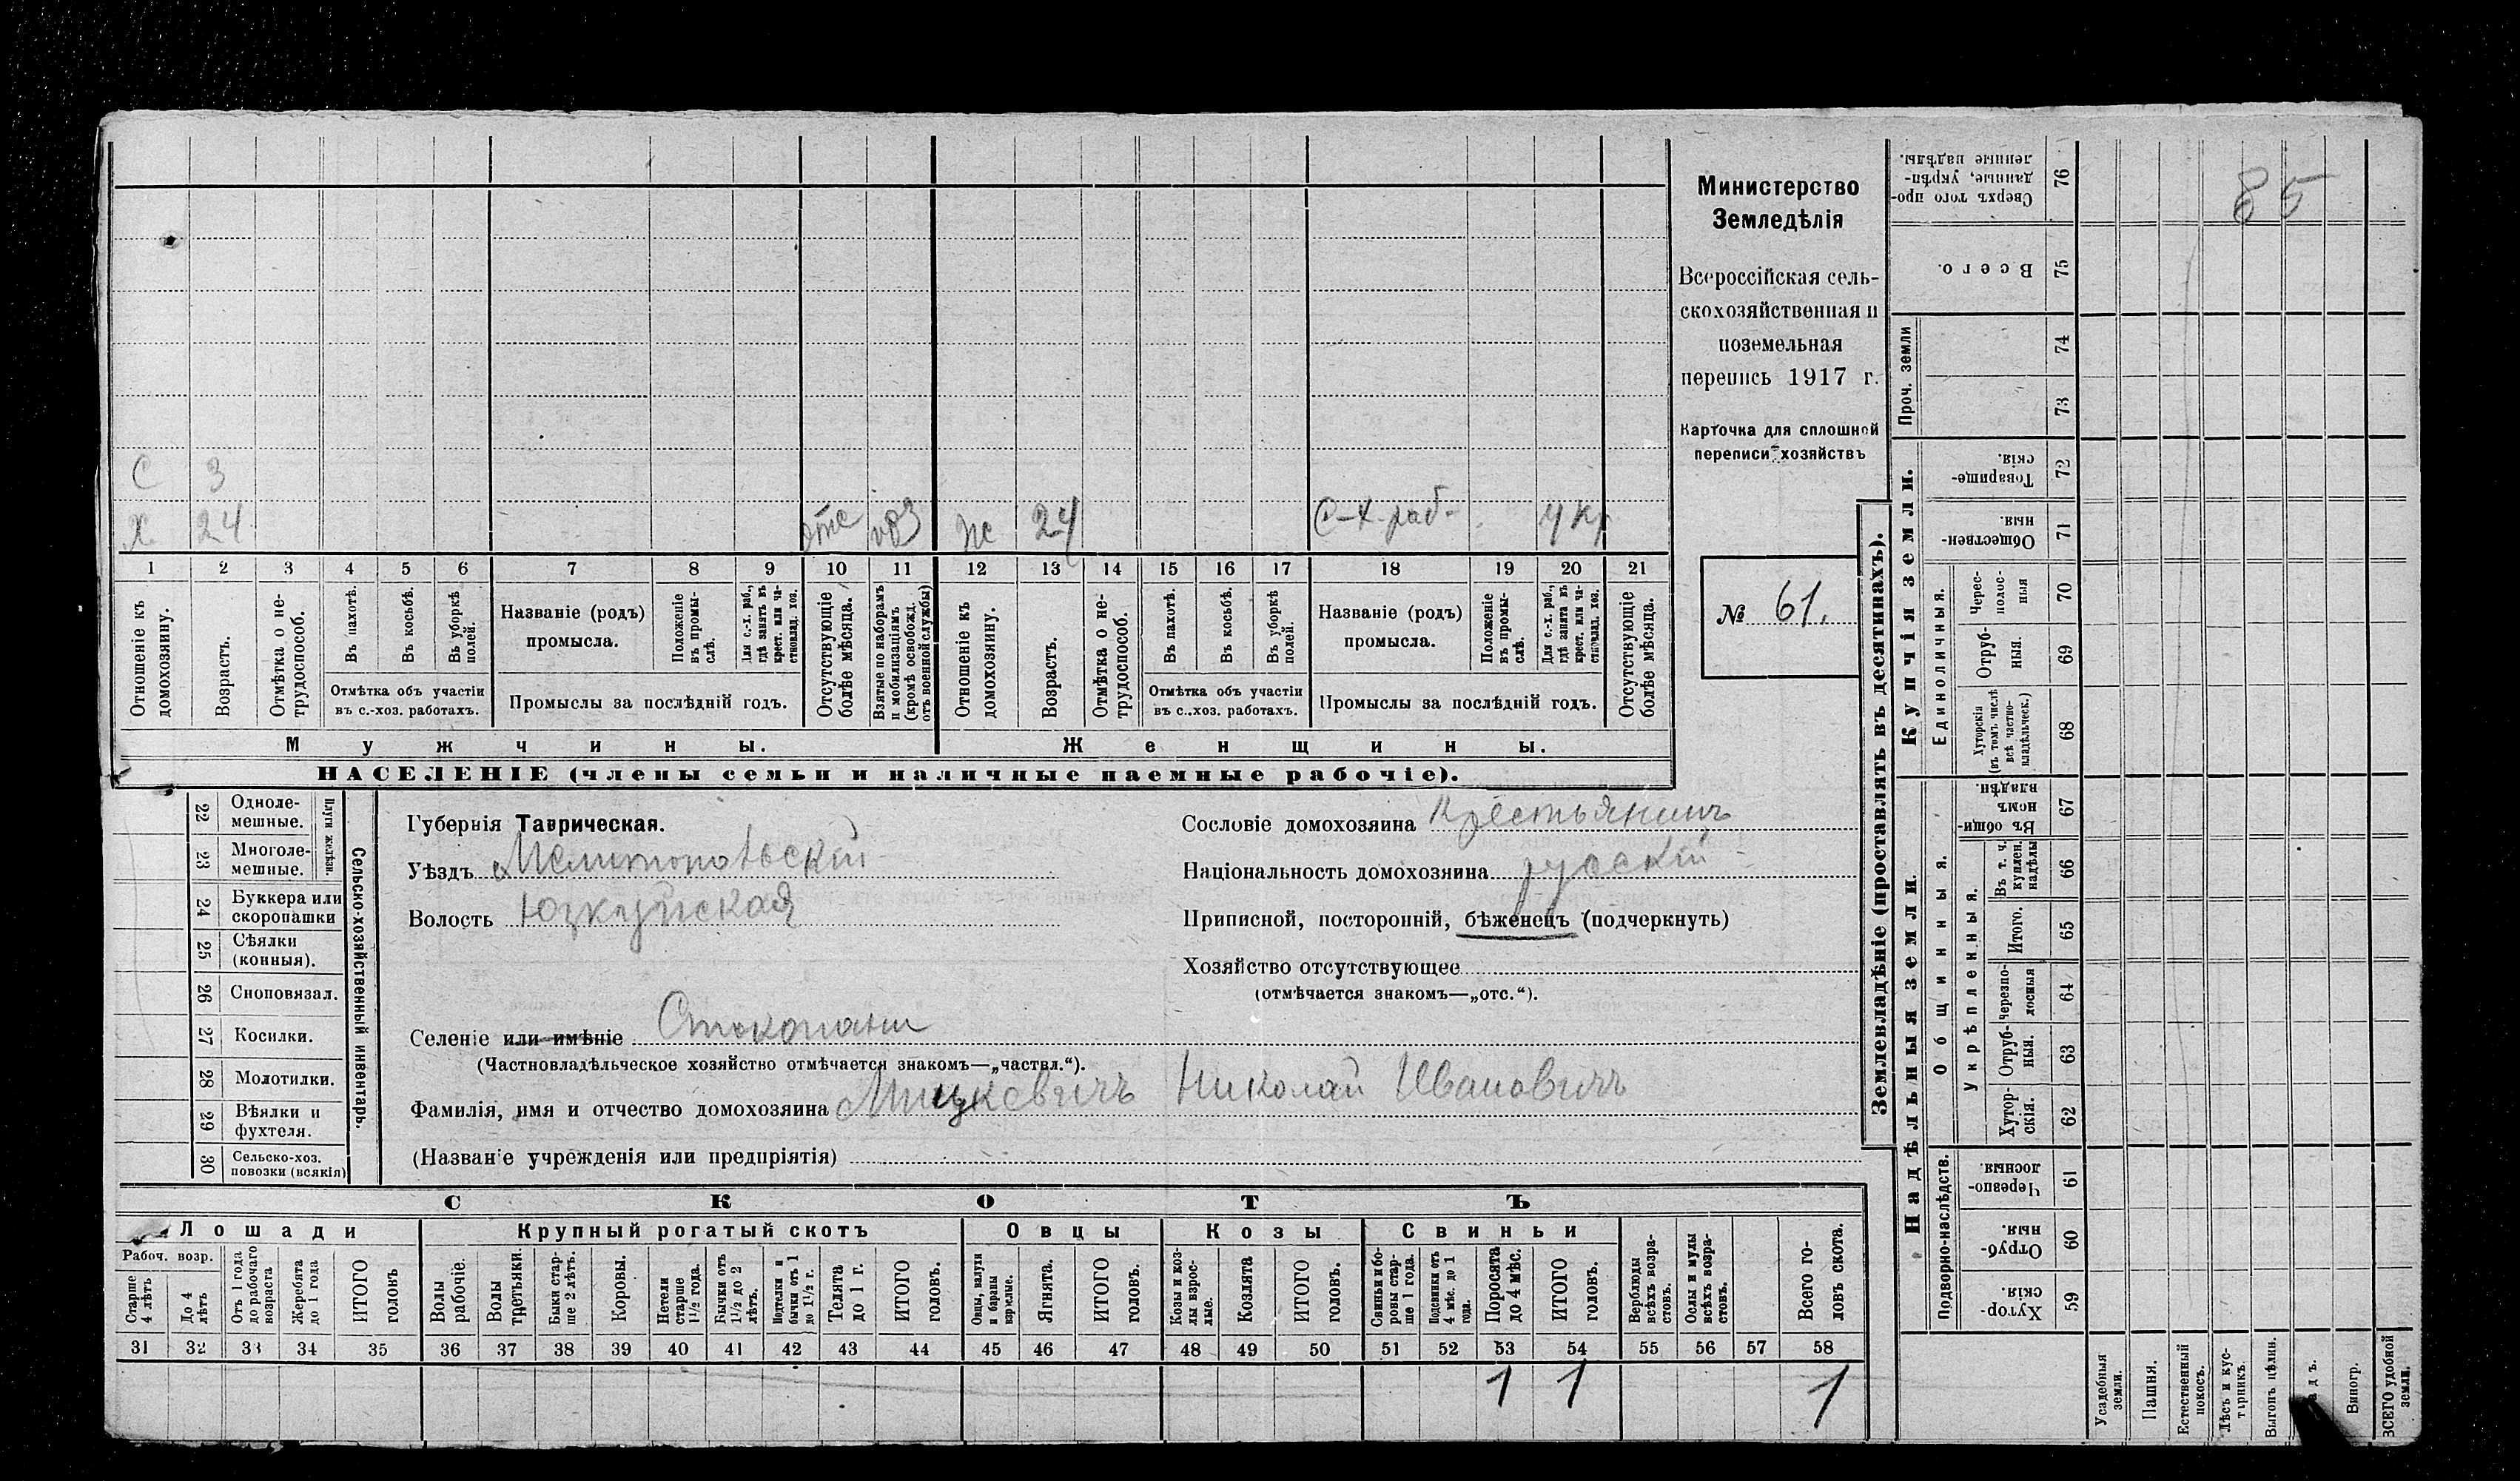 85
Министерство
Земледѣлія
Всероссійская сель-
скохозяйственная и
поземельная
перепись 1917 г.
Карточка для сплошной
переписи хозяйствъ
№ 61.
С 3
Х 24 отс моб Ж 24 С-х. раб. У кр
1 2 3 4 5 6 7 8 9 10 11 12 13 14 15 16 17 18 19 20 21
Отношеніе къ домохозяину.
Возрастъ.
Отмѣтка о не-трудоспособ.
Въ пахотѣ.
Въ косьбѣ.
Въ уборкѣ полей.
Отмѣтка объ участіи
въ с.-хоз. работахъ.
Названіе (родъ)
промысла.
Положеніе въ промы-слѣ.
Для с.-х. раб., гдѣ занятъ въ крест. или ча-стновлад. хоз.
Промыслы за послѣдній годъ.
Отсутствующіе болѣе мѣсяца.
Взятые по наборамъ и мобилизаціямъ (кромѣ освобожд. отъ военной службы)
Отношеніе къ домохозяину.
Возрастъ.
Отмѣтка о не-трудоспособ.
Въ пахотѣ.
Въ косьбѣ.
Въ уборкѣ полей.
Отмѣтка объ участіи
въ с.-хоз. работахъ.
Названіе (родъ)
промысла.
Положеніе въ промы-слѣ.
Для с.-х. раб., гдѣ занята въ крест. или ча-стновлад. хоз.
Промыслы за послѣдній годъ.
Отсутствующіе болѣе мѣсяца.
Мужчины. Женщины.
НАСЕЛЕНІЕ (члены семьи и наличные наемные рабочіе).
Сельско-хозяйственный инвентарь.
Плуги желѣзн.
22 Одноле-мешные.
23 Многоле-мешные.
24 Буккера или скоропашки
25 Сѣялки (конныя).
26 Сноповязал.
27 Косилки.
28 Молотилки.
29 Вѣялки и фухтеля.
30 Сельско-хоз. повозки (всякія)
Губернія Таврическая.
Уѣздъ Мелитопольскій
Волость Юзкуйская
Селеніе или имѣніе
(Частновладѣльческое хозяйство отмѣчается знакомъ—„частвл.“).
Фамилія, имя и отчество домохозяина Мицкевичъ Николай Ивановичъ
(Названіе учрежденія или предпріятія)
Сословіе домохозяина Крестьянинъ
Національность домохозяина рускій
Приписной, посторонній, бѣженецъ (подчеркнуть)
Хозяйство отсутствующее
(отмѣчается знакомъ—„отс.“).
СКОТЪ
Лошади Крупный рогатый скотъ Овцы Козы Свиньи
Рабоч. возр.
Старше 4 лѣтъ
До 4 лѣтъ
Отъ 1 года до рабочаго возраста
Жеребята до 1 года
ИТОГО головъ
Волы рабочіе.
Волы третьяки.
Быки стар-ше 2 лѣтъ.
Коровы.
Нетели старше 1½ года.
Бычки отъ 1½ до 2 лѣтъ.
Подтелки и бычки отъ 1 до 1½ г.
Телята до 1 г.
ИТОГО головъ.
Овцы, валухи и бараны взрослые.
Ягнята.
ИТОГО головъ.
Козы и коз-лы взрос-лые.
Козлята
ИТОГО головъ.
Свиньи и бо-ровы стар-ше 1 года.
Подсвинки отъ 4 мѣс. до 1 года.
Поросята до 4 мѣс.
ИТОГО головъ.
Верблюды всѣхъ возра-стовъ.
Ослы и мулы всѣхъ возра-стовъ.
Всего го-ловъ скота.
31 32 33 34 35 36 37 38 39 40 41 42 43 44 45 46 47 48 49 50 51 52 53 54 55 56 57 58
1 1 1
Землевладѣніе (проставлять въ десятинахъ).
Купчія земли.
Надѣльныя земли.
Сверхъ того про-данные, укрѣп-ленные надѣлы. 76
Всего. 75
Проч. земли 74
73
Товарище-скія. 72
Обществен-ныя. 71
Единоличныя.
Черес-полос-ныя 70
Отруб-ныя. 69
Хуторскія (въ томъ числѣ всѣ частно-владѣльческ.) 68
Общинныя.
Въ общи-номъ владѣн. 67
Укрѣпленныя.
Въ т. ч. куплен. надѣлы 66
Итого. 65
Черезпо-лосныя 64
Отруб-ныя. 63
Хутор-скія. 62
Подворно-наслѣдств.
Черезпо-лосныя. 61
Отруб-ныя. 60
Хутор-скія. 59
Усадебныя земли.
Пашня.
Естественный покосъ.
Лѣсъ и кус-тарникъ.
Выгонъ цѣлин.
Виногр.
ВСЕГО удобной земли.